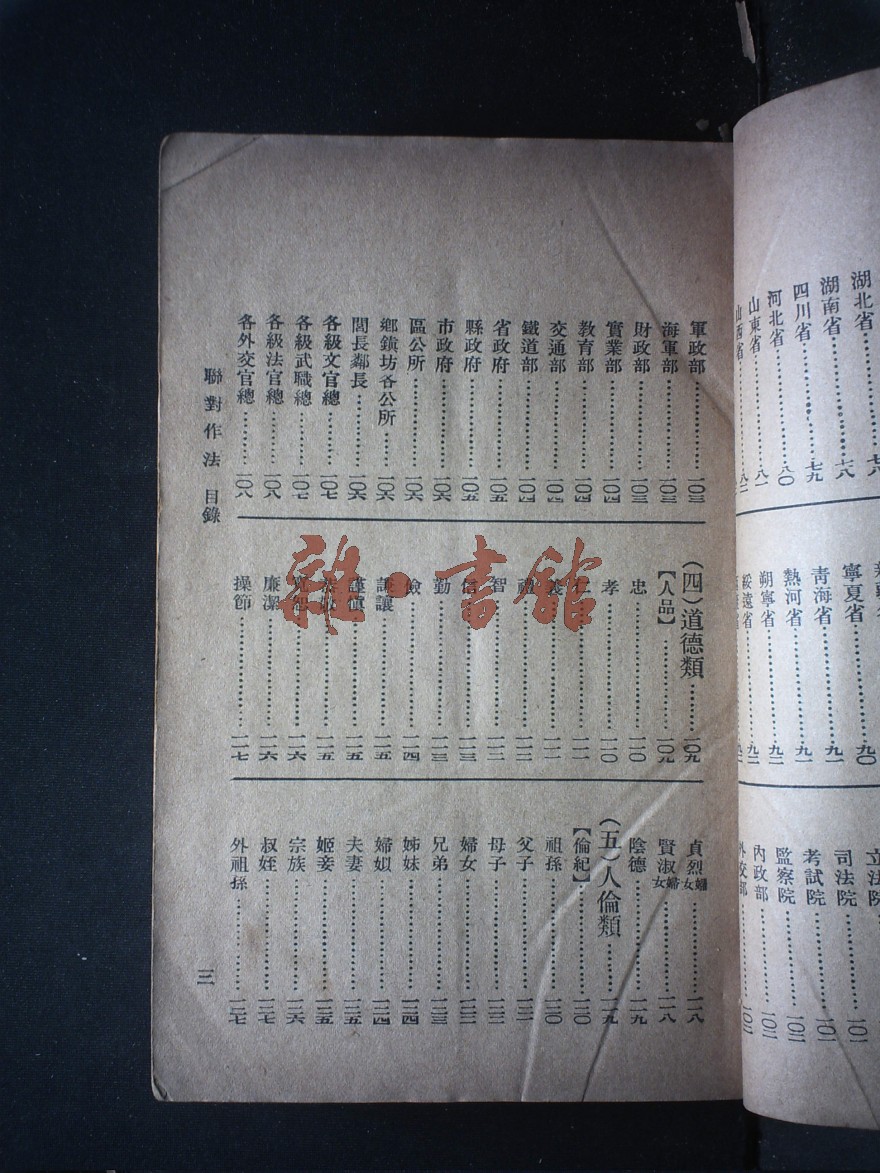 湖北省
湖南省
四川省……七九
河北省……八〇
山東省……八一
山西省
寧夏省……九〇
青海省……九一
熱河省……九一
朔寧省……九二
綏遠省……九二
立法院
司法院……一〇一
考試院……一〇一
監察院……一〇二
內政部……一〇二
外交部
軍政部……一〇三
海軍部……一〇三
財政部……一〇三
實業部……一〇四
教育部……一〇四
交通部……一〇四
鐵道部……一〇四
省政府……一〇五
縣政府……一〇五
市政府……一〇六
區公所……一〇六
鄉鎮坊各公所……一〇六
閭長鄰長……一〇六
各級文官總……一〇七
各級武職總……一〇七
各級法官總……一〇八
各外交官總……一〇八
(四)道德類……一〇九
【人品】……一〇九
忠……一一〇
孝……一一〇
仁……一一一
義……一一一
禮……一一二
智……一一二
信……一一三
勤……一一三
儉……一一四
謙讓……一一五
謹慎……一一五
一一五
寬恕……一一六
廉潔……一一六
操節……一一七
貞烈婦女……一一八
賢淑婦女……一一八
陰德……一一九
(五)人倫類……一一九
【倫紀】……一二〇
祖孫……一二〇
父子……一二一
母子……一二二
婦女……一二二
兄弟……一二三
姊妹……一二四
婦姒……一二四
夫妻……一二五
姬妾……一二五
宗族……一二六
叔姪……一二七
外祖孫……一二七
聯對作法 目錄
三
雜·書館